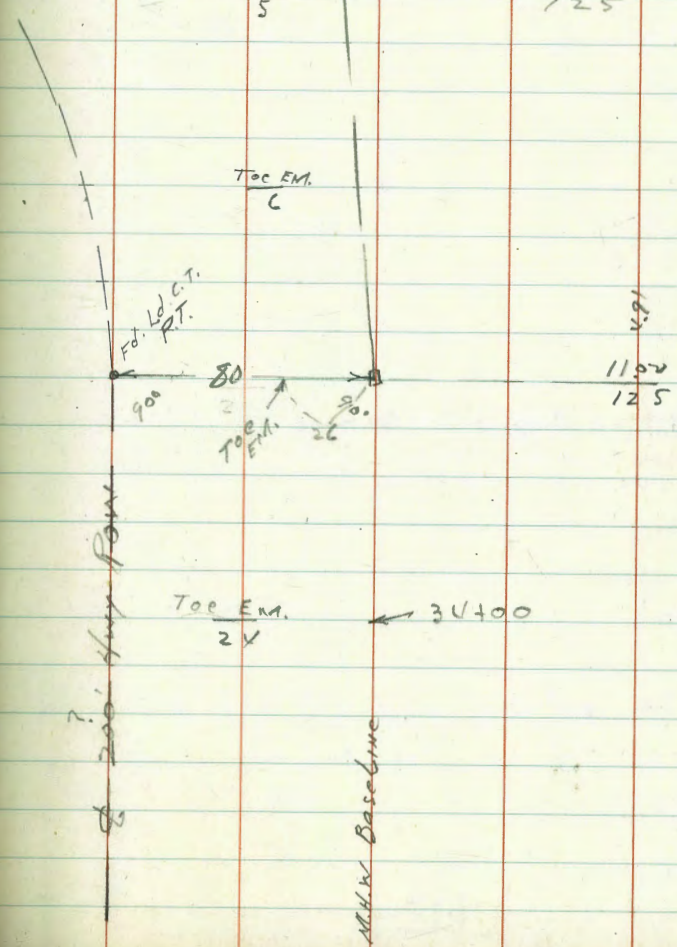 5
125
Toe EM.
6
Fd. Ld. C.T.
P.T.
80
90°
90°
26
Toe
EM.
V.91
11.00
125
Toe Em.
24
34+00
?
℄ 200' Hwy ROW
M.H.W Baseline